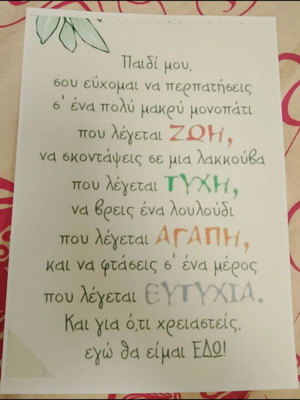 Παιδί μου,
σου εύχομαι να περπατήσεις
σ' ένα πολύ μακρύ μονοπάτι
που λέγεται ΖΩΗ,
να σκοντάψεις σε μια λακκούβα
που λέγεται ΤΥΧΗ,
να βρεις ένα λουλούδι
που λέγεται ΑΓΑΠΗ,
και να φτάσεις σ' ένα μέρος
που λέγεται ΕΥΤΥΧΙΑ.
Και για ό,τι χρειαστείς,
εγώ θα είμαι ΕΔΩ!